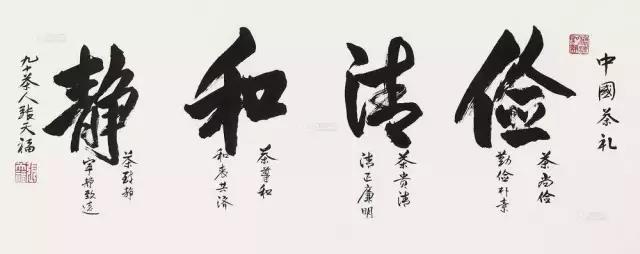 中國茶礼
俭
茶尚俭
勤俭朴素
清
茶贵清
清正廉明
和
茶尊和
和衷共济
静
茶致静
宁静致远
九十茶人張天福